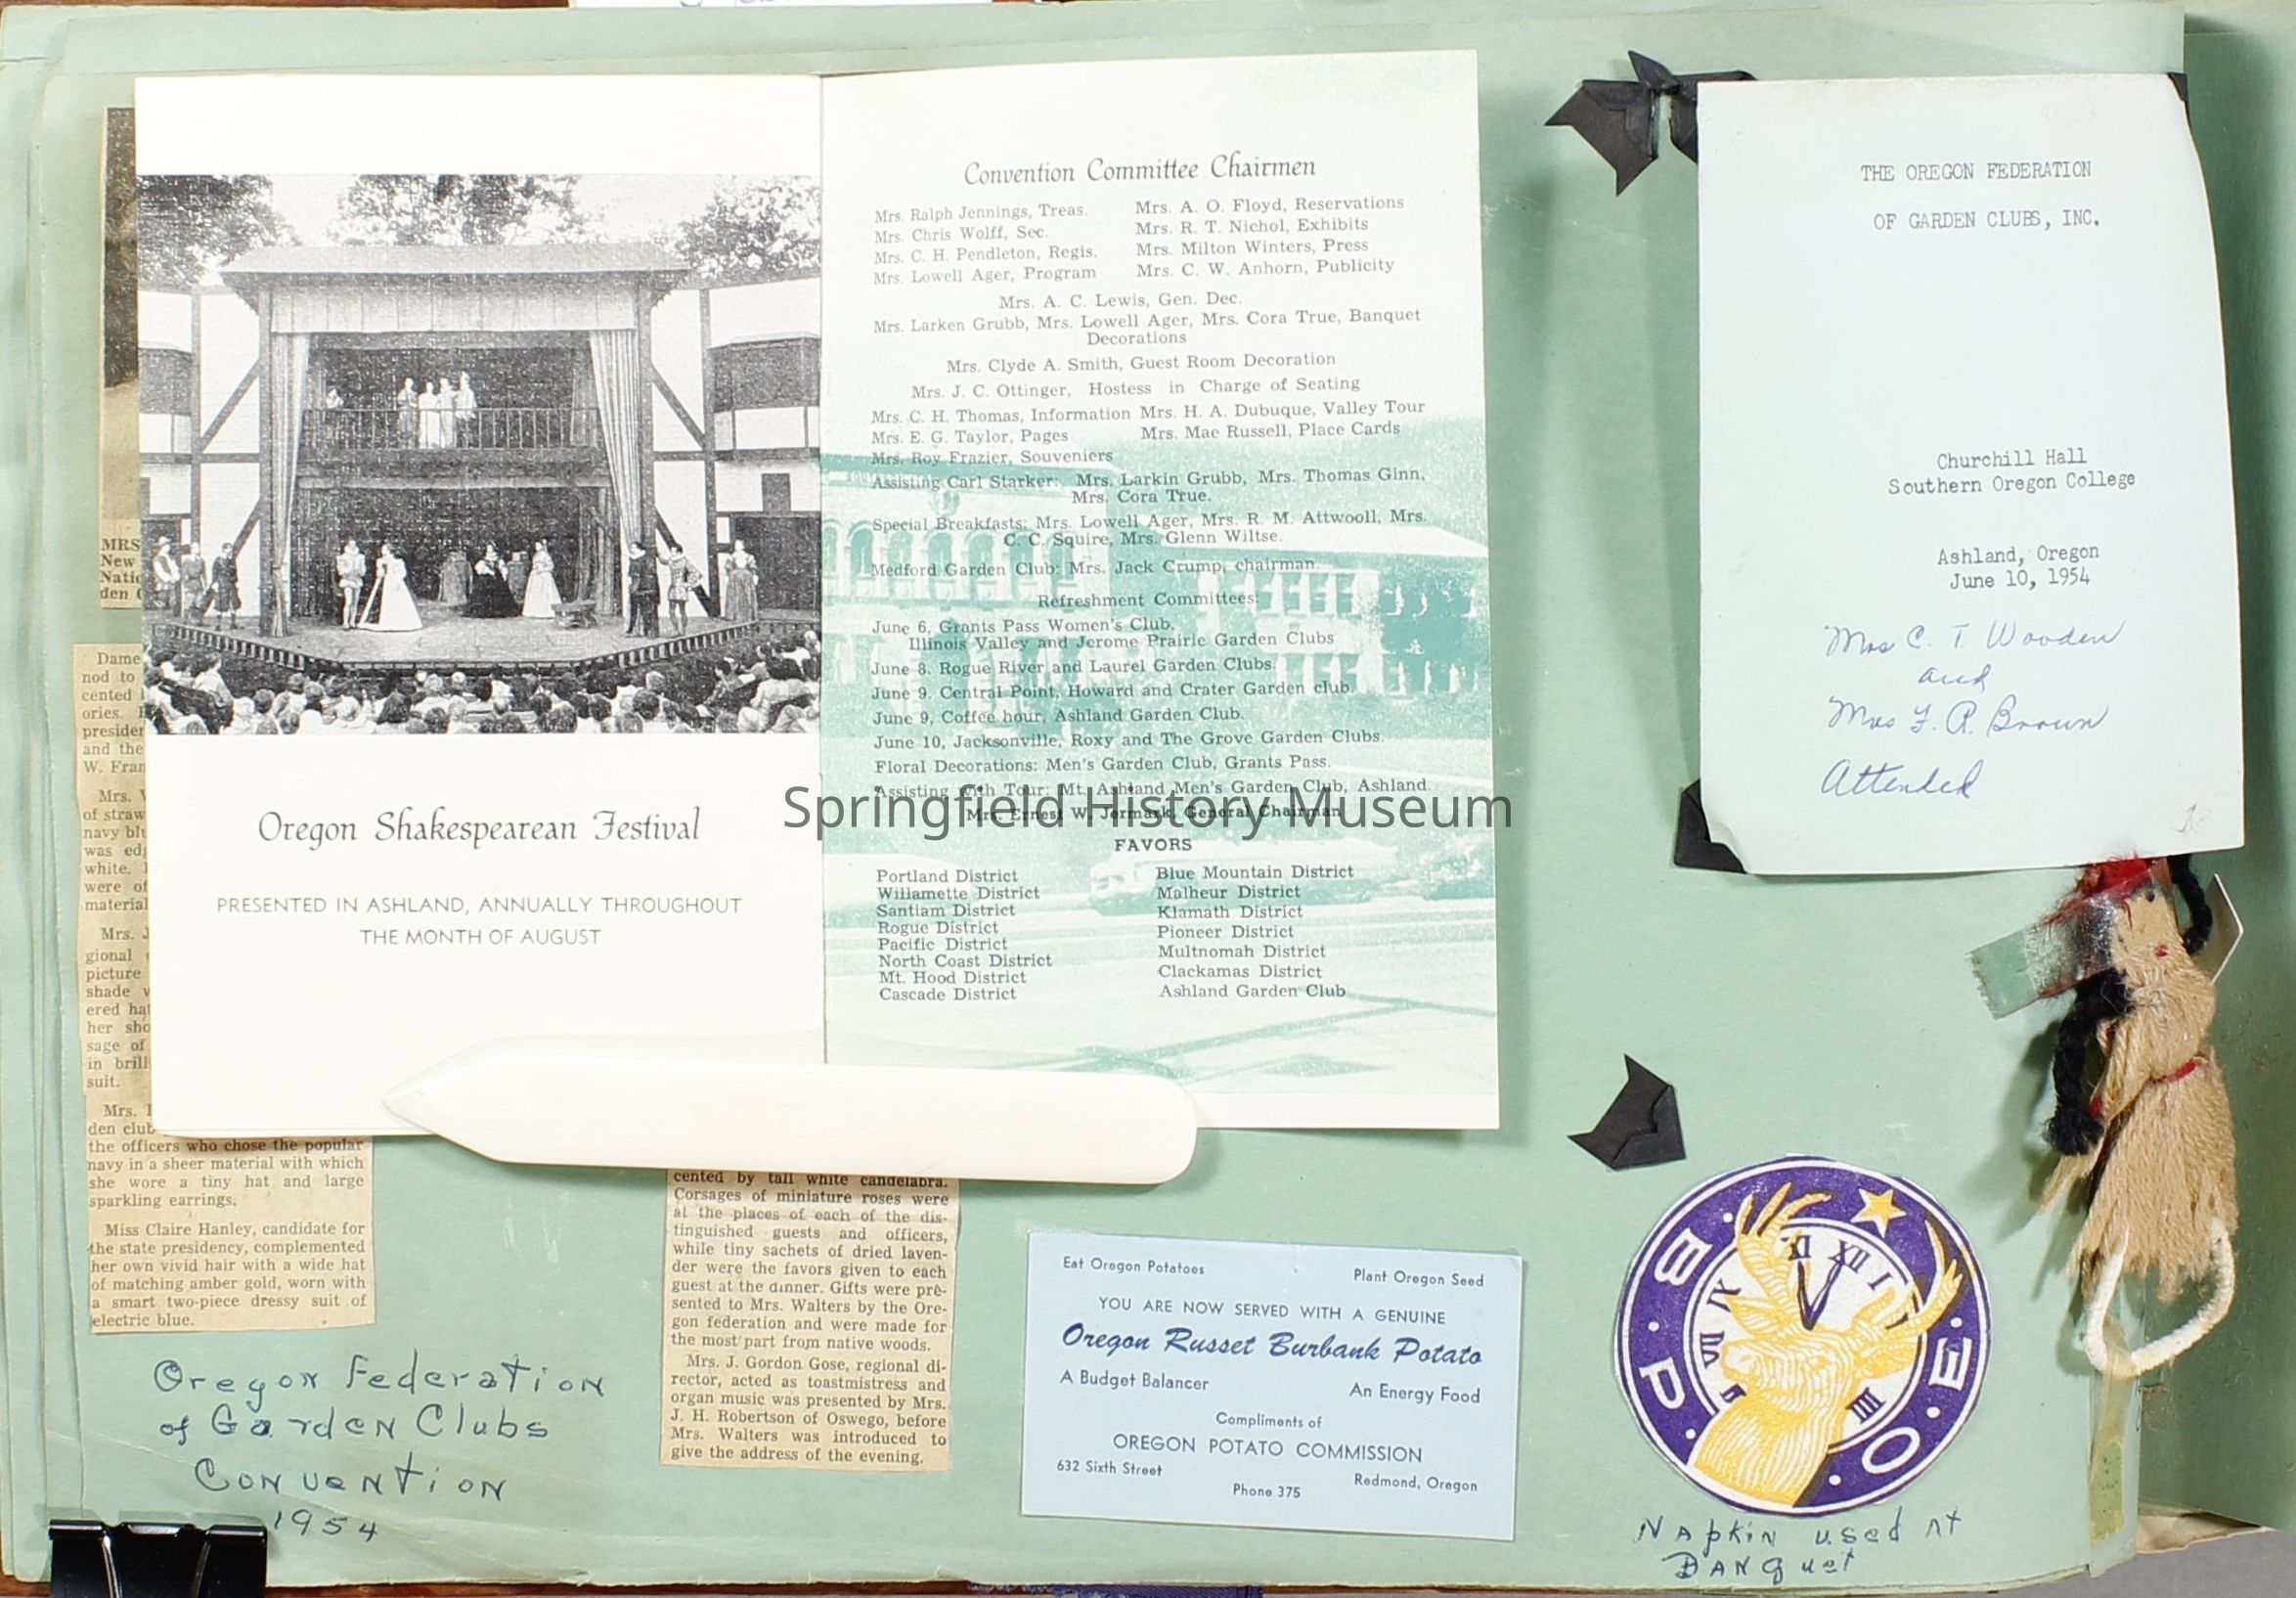 MRS
New
Natio
den C
Dame
nod to
cented
ories.
presiden
and the
W. Fran
Mrs.
of straw
navy blu
was edg
white.
were of
material
Mrs. J
gional
picture
shade
ered hat
her sho
sage of
in brill
suit.
Mrs.
den club
the officers who chose the popular
navy in a sheer material with which
she wore a tiny hat and large
sparkling earrings.
Miss Claire Hanley, candidate for
the state presidency, complemented
her own vivid hair with a wide hat
of matching amber gold, worn with
a smart two-piece dressy suit of
electric blue.
Oregon Shakespearean Festival
PRESENTED IN ASHLAND, ANNUALLY THROUGHOUT
THE MONTH OF AUGUST
Convention Committee Chairmen
Mrs. Ralph Jennings, Treas.
Mrs. Chris Wolff, Sec.
Mrs. C. H. Pendleton, Regis.
Mrs. Lowell Ager, Program
Mrs. A. O. Floyd, Reservations
Mrs. R. T. Nichol, Exhibits
Mrs. Milton Winters, Press
Mrs. C. W. Anhorn, Publicity
Mrs. A. C. Lewis, Gen. Dec.
Mrs. Larken Grubb, Mrs. Lowell Ager, Mrs. Cora True, Banquet
Decorations
Mrs. Clyde A. Smith, Guest Room Decoration
Mrs. J. C. Ottinger, Hostess in Charge of Seating
Mrs. C. H. Thomas, Information Mrs. H. A. Dubuque, Valley Tour
Mrs. E. G. Taylor, Pages Mrs. Mae Russell, Place Cards
Mrs. Roy Frazier, Souveniers
Assisting Carl Starker: Mrs. Larkin Grubb, Mrs. Thomas Ginn,
Mrs. Cora True.
Special Breakfasts: Mrs. Lowell Ager, Mrs. R. M. Attwooll, Mrs.
C. C. Squire, Mrs. Glenn Wiltse.
Medford Garden Club: Mrs. Jack Crump, chairman.
Refreshment Committees:
June 6, Grants Pass Women's Club.
Illinois Valley and Jerome Prairie Garden Clubs
June 8. Rogue River and Laurel Garden Clubs.
June 9. Central Point, Howard and Crater Garden club.
June 9, Coffee hour, Ashland Garden Club.
June 10, Jacksonville, Roxy and The Grove Garden Clubs.
Floral Decorations: Men's Garden Club, Grants Pass.
Assisting with Tour: Mt. Ashland Men's Garden Club, Ashland.
Mrs. Ernest W. Jermark, General Chairman
FAVORS
Portland District
Willamette District
Santiam District
Rogue District
Pacific District
North Coast District
Mt. Hood District
Cascade District
Blue Mountain District
Malheur District
Klamath District
Pioneer District
Multnomah District
Clackamas District
Ashland Garden Club
Springfield History Museum
THE OREGON FEDERATION
OF GARDEN CLUBS, INC.
Churchill Hall
Southern Oregon College
Ashland, Oregon
June 10, 1954
Mrs C. T. Wooden
and
Mrs F. R. Brown
Attended
cented by tall white candelabra.
Corsages of miniature roses were
at the places of each of the dis-
tinguished guests and officers,
while tiny sachets of dried laven-
der were the favors given to each
guest at the dinner. Gifts were pre-
sented to Mrs. Walters by the Ore-
gon federation and were made for
the most part from native woods.
Mrs. J. Gordon Gose, regional di-
rector, acted as toastmistress and
organ music was presented by Mrs.
J. H. Robertson of Oswego, before
Mrs. Walters was introduced to
give the address of the evening.
Oregon Federation
of Garden Clubs
Convention
1954
Eat Oregon Potatoes
Plant Oregon Seed
YOU ARE NOW SERVED WITH A GENUINE
Oregon Russet Burbank Potato
A Budget Balancer
An Energy Food
Compliments of
OREGON POTATO COMMISSION
632 Sixth Street
Phone 375
Redmond, Oregon
B.P.O.E.
Napkin used at
Banquet